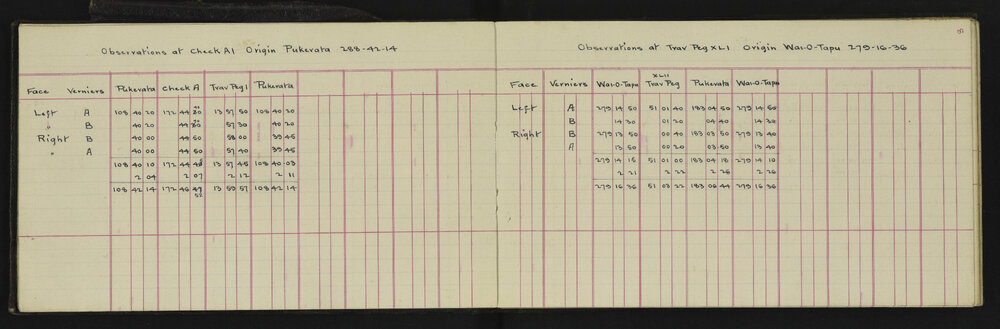 Observations at Check A1 Origin Pukerata 288-42-14
Face Verniers Pukerata Check A Trav Peg 1 Pukerata
Left A 108 40 20 172 44 13 57 50 108 40 20
" B 40 20 44 57 30 40 20
Right B 40 00 44 50 58 00 39 45
" A 40 00 44 50 57 40 39 45
108 40 10 172 44 13 57 45 108 40 03
2 04 2 07 2 12 2 11
108 42 14 172 46 13 59 57 108 42 14
52
Observations at Trav Peg XLI Origin Wai-O-Tapu 279-16-36
XLII
Face Verniers Wai-O-Tapu Trav Peg Pukerata Wai-O-Tapu
Left A 279 14 50 51 01 40 183 04 50 279 14 50
B 14 30 01 20 04 40 14 30
Right B 279 13 50 00 40 183 03 50 279 13 40
A 13 50 00 20 03 50 13 40
279 14 15 51 01 00 183 04 18 279 14 10
2 21 2 22 2 26 2 26
279 16 36 51 03 22 183 06 44 279 16 36